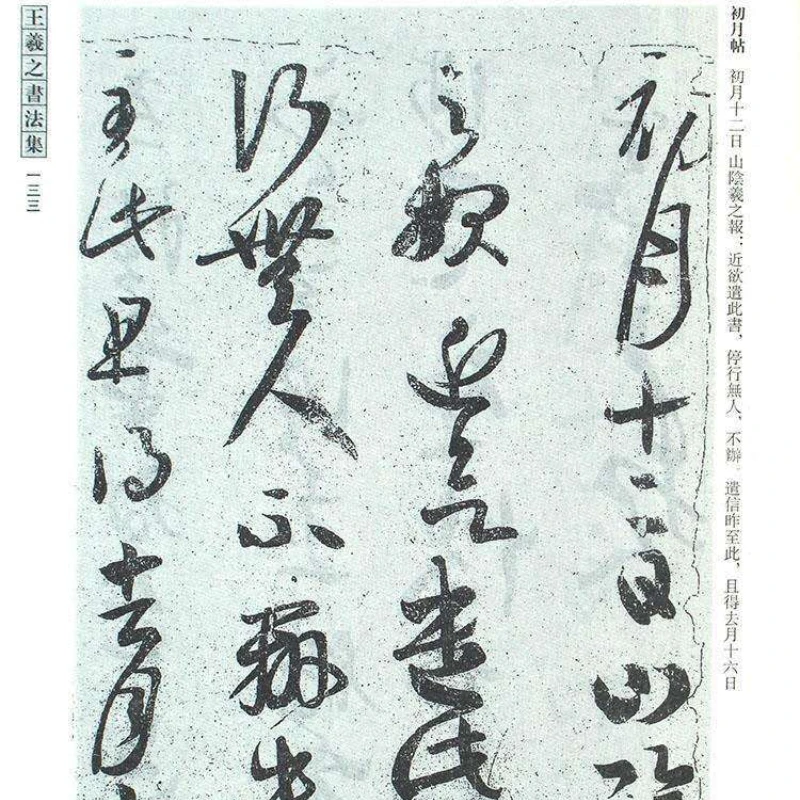 初月帖　初月十二日 山陰羲之報：近欲遣此書，停行無人，不辦　遣信昨至此，且得去月十六日
初月十二日山陰
之報近欲遣此
行無人不辦
至此且得去月
王羲之書法集
一三三